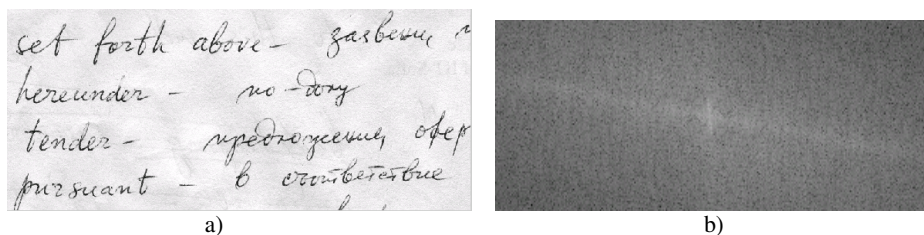 set forth above - заявени,
hereunder -
tender - предложении, офер
pursuant - в соответствие
a) b)